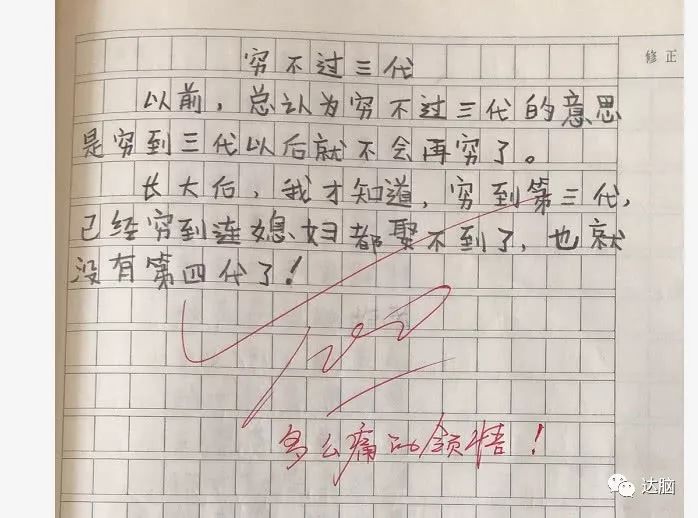 穷不过三代
修正
以前，总认为穷不过三代的意思
是穷到三代以后就不会再穷了。
长大后，我才知道，穷到第三代，
已经穷到连媳妇都娶不到了，也就
没有第四代了！
100
多么痛的领悟！
达脑